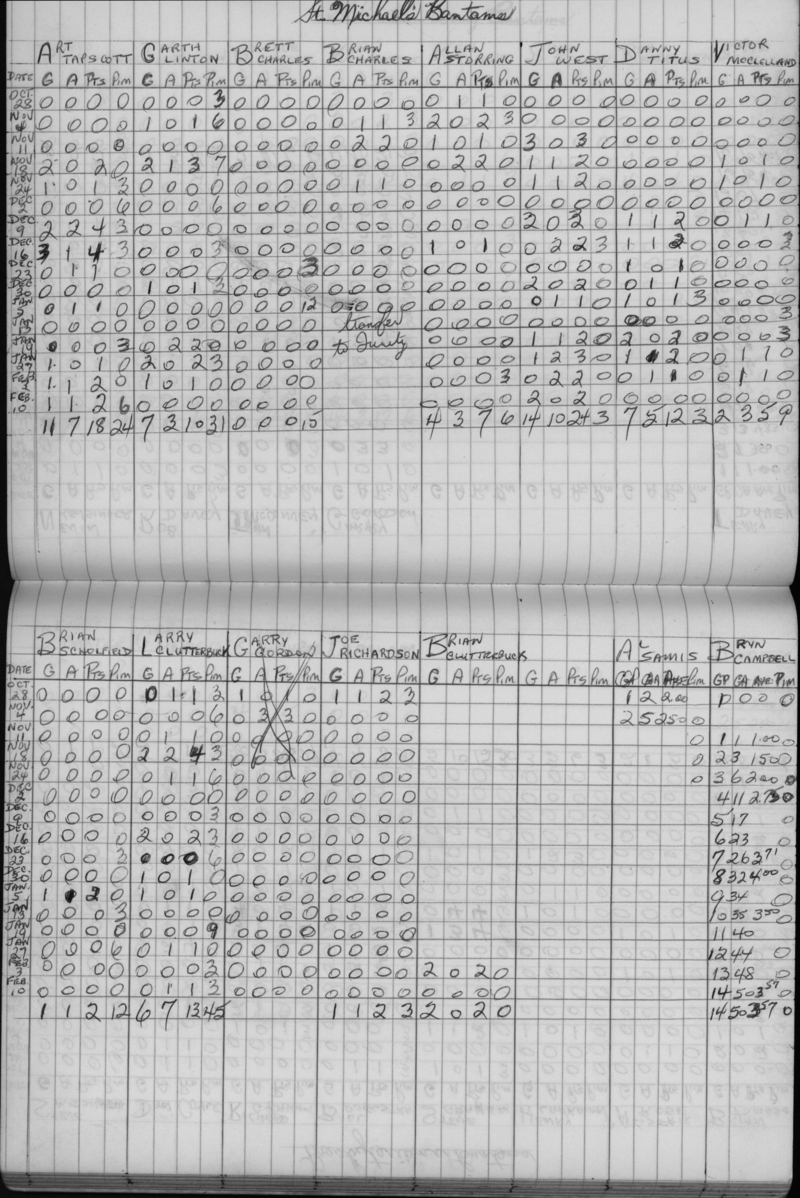 St. Michael's Bantams
ART TAPSCOTT GARTH LINTON BRETT CHARLES BRIAN CHARLES ALLAN STORRING JOHN WEST DANNY TITUS VICTOR MCCLELLAND
DATE G A Pts Pim G A Pts Pim G A Pts Pim G A Pts Pim G A Pts Pim G A Pts Pim G A Pts Pim G A Pts Pim
OCT. 28 0 0 0 0 0 0 0 3 0 0 0 0 0 0 0 0 0 1 1 0 0 0 0 0 0 0 0 0 0 0 0 0
NOV 4 0 0 0 0 1 0 1 6 0 0 0 0 0 1 1 3 2 0 2 3 0 0 0 0 0 0 0 0 0 0 0 0
NOV 11 0 0 0 0 0 0 0 0 0 0 0 0 0 2 2 0 1 0 1 0 3 0 3 0 0 0 0 0 0 0 0 0
NOV 18 2 0 2 0 2 1 3 7 0 0 0 0 0 0 0 0 0 2 2 0 1 1 2 0 0 0 0 0 1 0 1 0
NOV 24 1 0 1 3 0 0 0 0 0 0 0 0 0 1 1 0 0 0 0 0 1 1 2 0 0 0 0 0 1 0 1 0
DEC 2 0 0 0 6 0 0 0 6 0 0 0 0 0 0 0 0 0 0 0 0 0 0 0 0 0 0 0 0 0 0 0 0
DEC. 9 2 2 4 3 0 0 0 0 0 0 0 0 0 0 0 0 0 0 0 0 2 0 2 0 1 1 2 0 0 1 1 0
DEC. 16 3 1 4 3 0 0 0 3 0 0 0 0 0 0 0 0 1 0 1 0 0 2 2 3 1 1 2 0 0 0 0 3
DEC 23 0 1 1 0 0 0 0 0 0 0 0 3 0 0 0 0 0 0 0 0 0 0 0 0 1 0 1 0 0 0 0 0
DEC 30 0 0 0 0 1 0 1 3 0 0 0 0 0 0 0 0 0 0 0 0 2 0 2 0 0 1 1 0 0 0 0 0
JAN 5 0 1 1 0 0 0 0 0 0 0 0 12 0 0 0 0 0 0 0 0 0 1 1 0 1 0 1 3 0 0 0 0
JAN 13 0 0 0 0 0 0 0 0 0 0 0 0 0 0 0 0 0 0 0 0 0 0 0 0 0 0 0 3
JAN 19 0 0 0 3 0 2 2 0 0 0 0 0 to 0 0 0 0 1 1 2 0 2 0 2 0 0 0 0 3
JAN 27 1 0 1 0 2 0 2 3 0 0 0 0 0 0 0 0 1 2 3 0 1 1 2 0 0 1 1 0
FEB 3 1 1 2 0 1 0 1 0 0 0 0 0 0 0 0 3 0 2 2 0 0 1 1 0 0 1 1 0
FEB. 10 1 1 2 6 0 0 0 0 0 0 0 0 0 0 0 0 2 0 2 0 0 0 0 0 0 0 0 0
11 7 18 24 7 3 10 31 0 0 0 15 4 3 7 6 14 10 24 3 7 5 12 3 2 3 5 9
BRIAN SCHOLFIELD LARRY CLUTTERBUCK GARRY GORDON JOE RICHARDSON BRIAN CLUTTERBUCK AL SAMIS BRYN CAMPBELL
DATE G A Pts Pim G A Pts Pim G A Pts Pim G A Pts Pim G A Pts Pim G A Pts Pim GP GA AVE Pim GP GA AVE Pim
OCT. 28 0 0 0 0 0 1 1 3 1 0 1 0 1 1 2 3 1 2 2.00 0 0 0 0
NOV. 4 0 0 0 0 0 0 0 6 0 3 3 0 0 0 0 0 2 5 250 0
NOV 11 0 0 0 0 0 1 1 0 0 0 0 0 0 0 0 0 0 1 1 1.00 0
NOV 18 0 0 0 0 2 2 4 3 0 0 0 0 0 0 0 0 0 2 3 150 0
NOV 24 0 0 0 0 0 1 1 6 0 0 0 0 0 0 0 0 0 3 6 200 0
DEC 2 0 0 0 0 0 0 0 0 0 0 0 0 0 0 0 0 4 11 275 0
DEC. 9 0 0 0 0 0 0 0 3 0 0 0 0 0 0 0 0 5 17 0
DEC. 16 0 0 0 0 2 0 2 3 0 0 0 0 0 0 0 0 6 23 0
DEC. 23 0 0 0 3 0 0 0 6 0 0 0 0 0 0 0 0 7 26 371 0
DEC. 30 0 0 0 0 1 0 1 0 0 0 0 0 0 0 0 0 8 32 400 0
JAN. 5 1 1 2 0 1 0 1 0 0 0 0 0 0 0 0 0 9 34 0
JAN 13 0 0 0 3 0 0 0 0 0 0 0 0 0 0 0 0 10 35 350 0
JAN 19 0 0 0 0 0 0 0 9 0 0 0 0 0 0 0 0 11 40
JAN 27 0 0 0 6 0 1 1 0 0 0 0 0 0 0 0 0 12 44 0
FEB. 3 0 0 0 0 0 0 0 3 0 0 0 0 0 0 0 0 2 0 2 0 13 48 0
FEB. 10 0 0 0 0 0 1 1 3 0 0 0 0 0 0 0 0 0 0 0 0 14 50 357 0
1 1 2 12 6 7 13 45 1 1 2 3 2 0 2 0 14 50 357 0